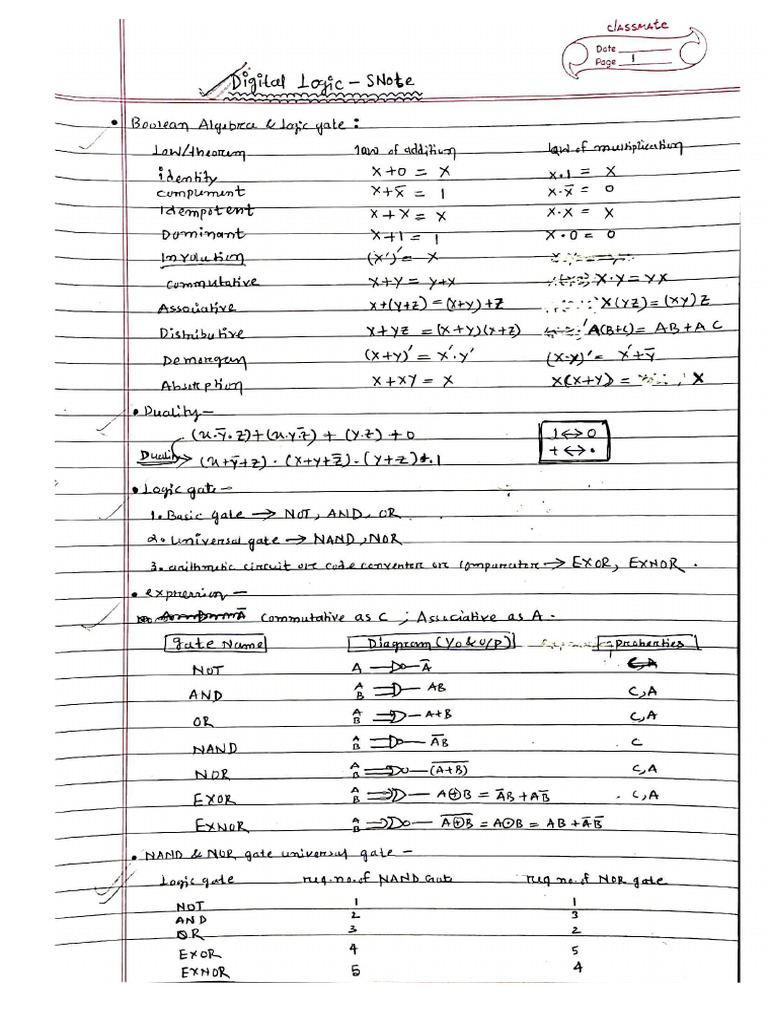 classmate
Date
Page 1
Digital Logic - SNote
• Boolean Algebra & Logic gate :
Law/theorem law of addition law of multiplication
identity X+0 = X X.1 = X
complement X+X̅ = 1 X.X̅ = 0
Idempotent X+X = X X.X = X
Dominant X+1 = 1 X.0 = 0
Involution (X')' = X
commutative X+Y = Y+X X.Y = YX
Associative X+(Y+Z) = (X+Y)+Z X(YZ) = (XY)Z
Distributive X+YZ = (X+Y)(X+Z) A(B+C) = AB+AC
Demorgan (X+Y)' = X'.Y' (X.Y)' = X'+Y̅
Absorption X+XY = X X(X+Y) = X
• Duality -
(x.y̅.z)+(x.y.z̅) + (y.z) + 0 1 ↔ 0
Duality → (x+y̅+z) . (x+y+z̅) . (y+z) . 1 + ↔ •
• Logic gate -
1. Basic gate → NOT, AND, OR
2. universal gate → NAND, NOR
3. arithmetic circuit or code converter or comparator → EXOR, EXNOR.
• expression -
Commutative as C ; Associative as A.
gate Name Diagram (I/O & O/P) properties
NOT A A̅ C,A
AND A B AB C,A
OR A B A+B C,A
NAND A B A̅B̅ C
NOR A B (A+B)̅ C,A
EXOR A B A⊕B = A̅B + AB̅ C,A
EXNOR A B A⊕B̅ = A⊙B = AB + A̅B̅
• NAND & NOR gate universal gate -
Logic gate req. no. of NAND Gate req no. of NOR gate
NOT 1 1
AND 2 3
OR 3 2
EXOR 4 5
EXNOR 5 4